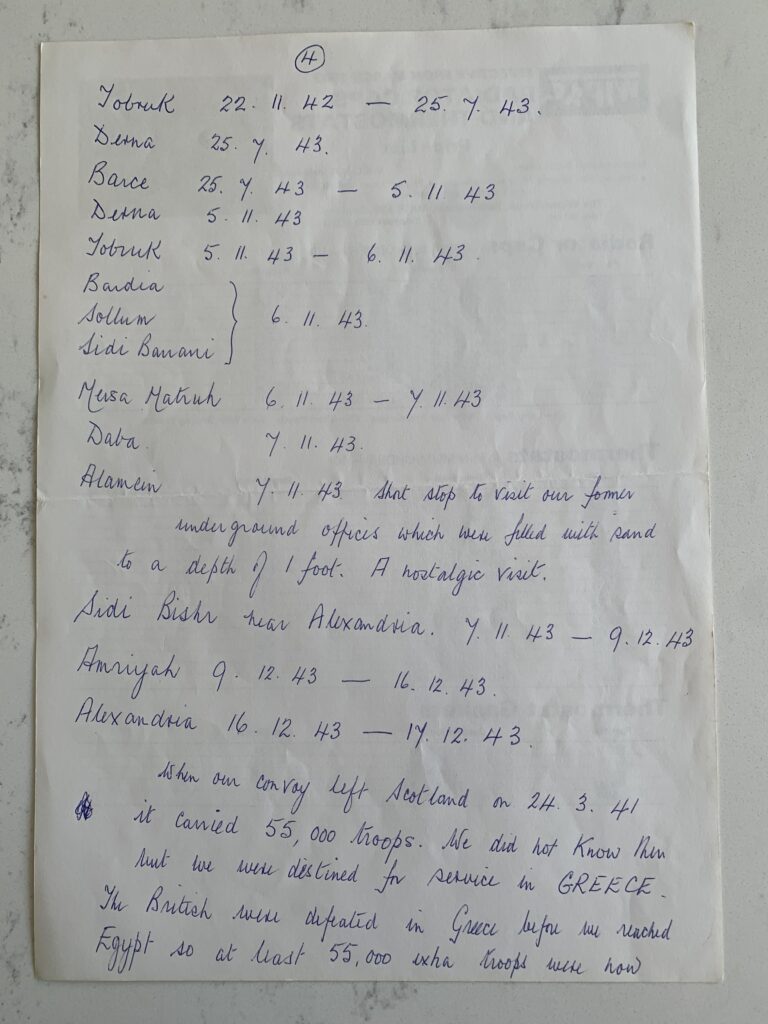 4
Tobruk 22. 11. 42 — 25. 7. 43.
Derna 25. 7. 43.
Barce 25. 7. 43 — 5. 11. 43
Derna 5. 11. 43
Tobruk 5. 11. 43 — 6. 11. 43.
Bardia
Sollum
Sidi Barrani } 6. 11. 43.
Mersa Matruh 6. 11. 43 — 7. 11. 43
Daba 7. 11. 43.
Alamein 7. 11. 43 Short stop to visit our former
underground offices which were filled with sand
to a depth of 1 foot. A nostalgic visit.
Sidi Bishr near Alexandria. 7. 11. 43 — 9. 12. 43
Amriyah 9. 12. 43 — 16. 12. 43.
Alexandria 16. 12. 43 — 17. 12. 43.
When our convoy left Scotland on 24. 3. 41
it carried 55,000 troops. We did not know then
but we were destined for service in GREECE.
The British were defeated in Greece before we reached
Egypt so at least 55,000 extra troops were now